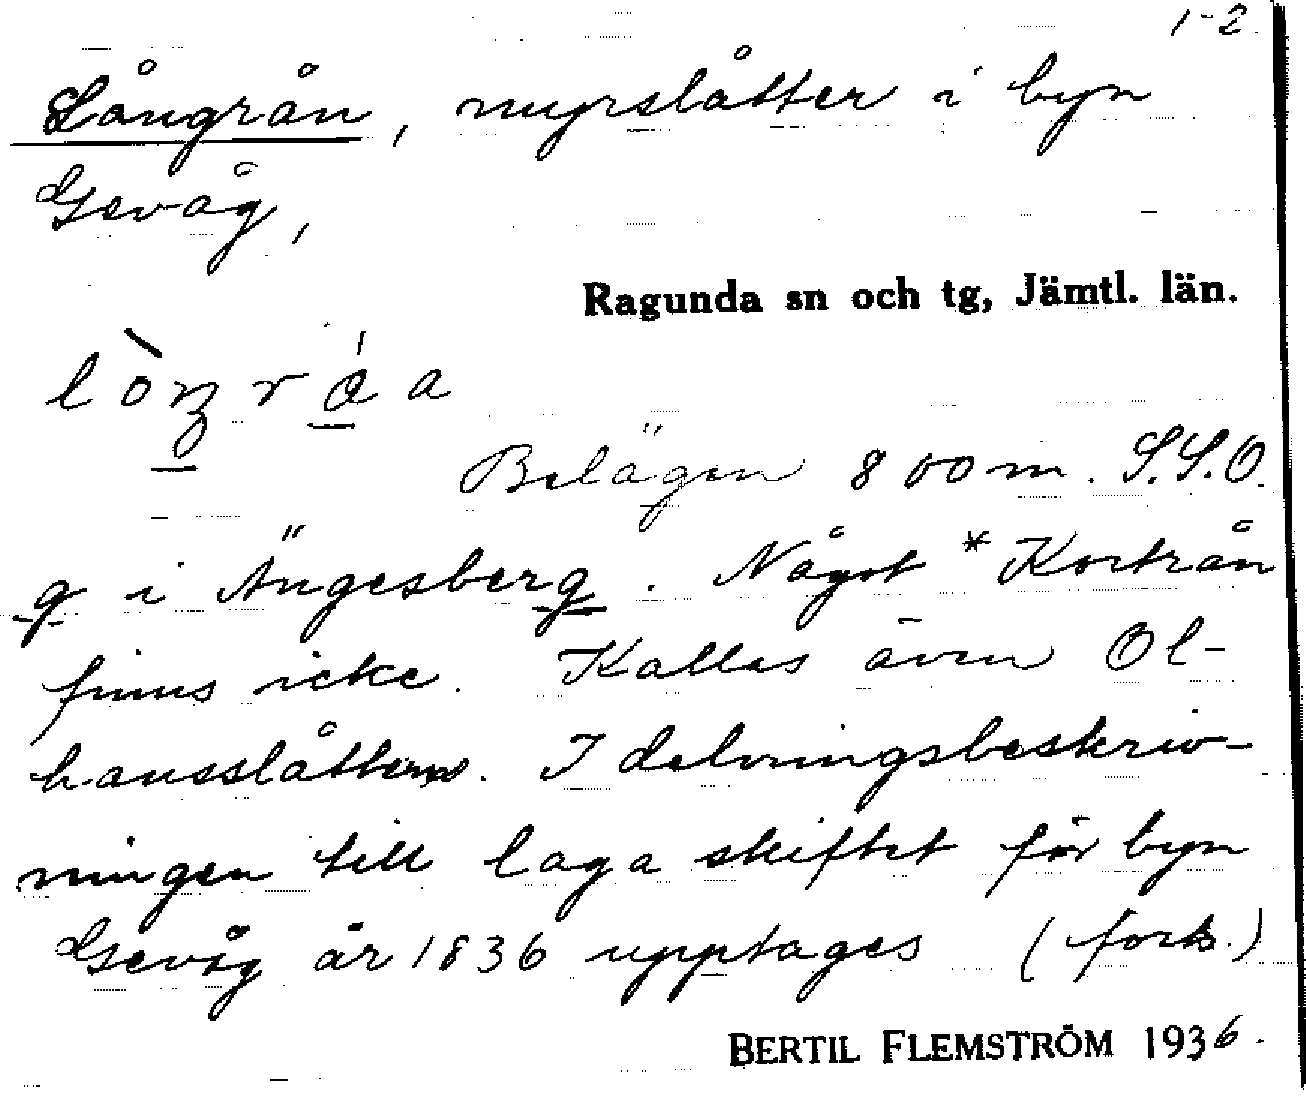 1-2
Långrån, myrslåtter i byn
Gevåg,
Ragunda sn och tg, Jämtl. län.
Belägen 800 m. S.S.O.
g i Ängesberg. Något *Kortrån
finns icke. Kallas även Ol-
hansslåtten. I delningsbeskriv-
ningen till laga skiftet för byn
Gevåg år 1836 upptages (forts.)
BERTIL FLEMSTRÖM 1936.